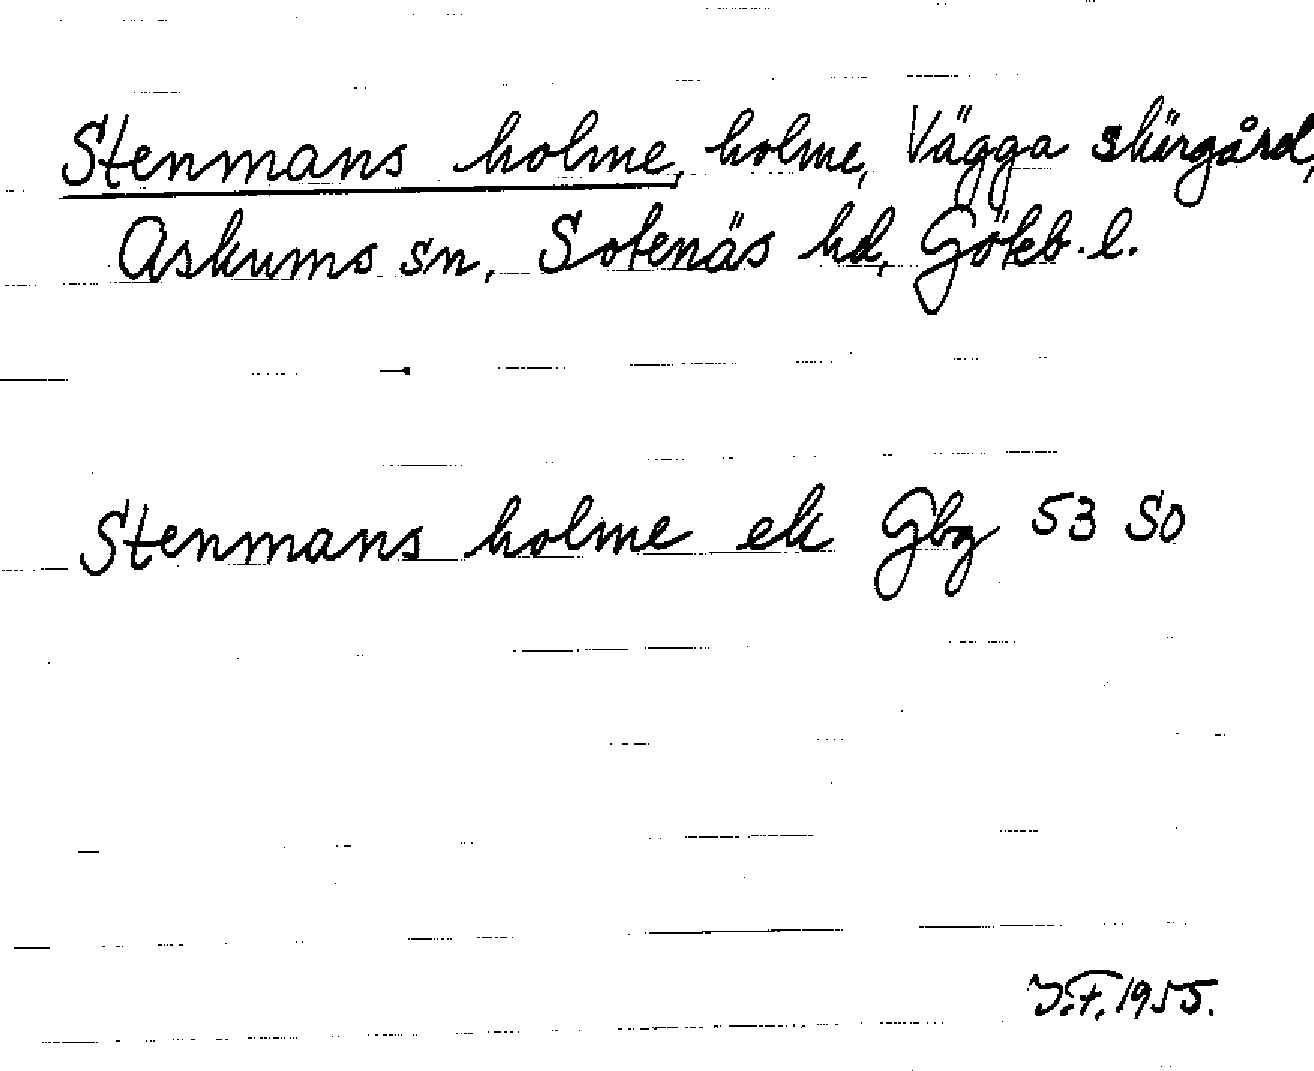 Stenmans holme, holme, Vägga skärgård,
Askums sn, Sotenäs hd, Göteb. l.
Stenmans holme ek Gbg 53 SO
J.F. 1955.